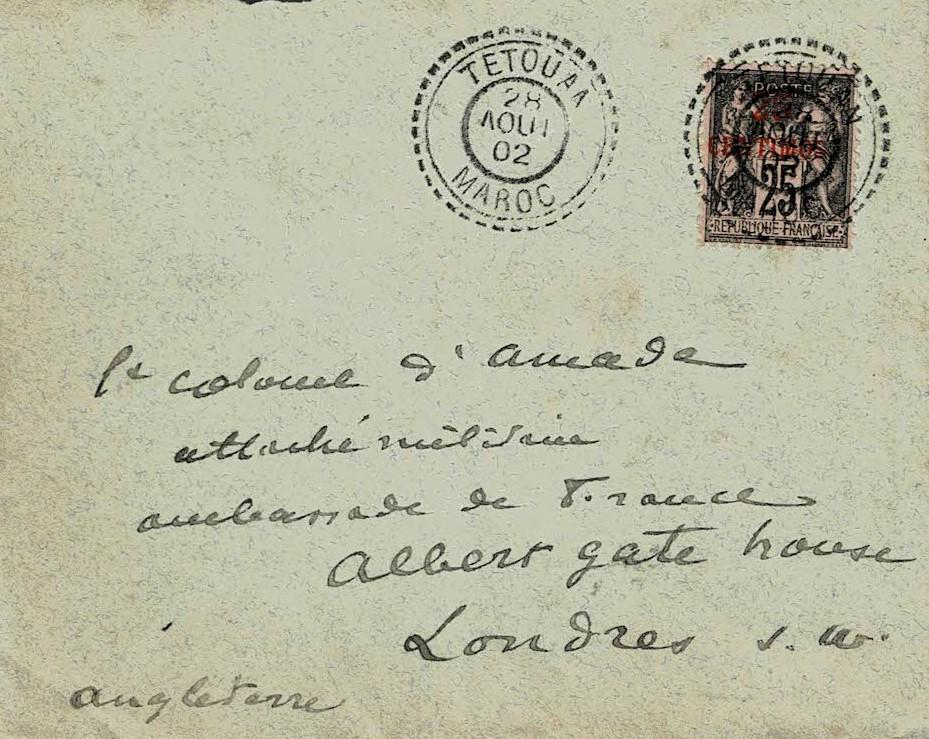 TETOUAN
28
AOUT
02
MAROC
POSTE
25
CENTIMOS
25
REPUBLIQUE FRANÇAISE
Lt colonel d'amade
attaché militaire
ambassade de France
Albert gate house
Londres s.w.
angleterre